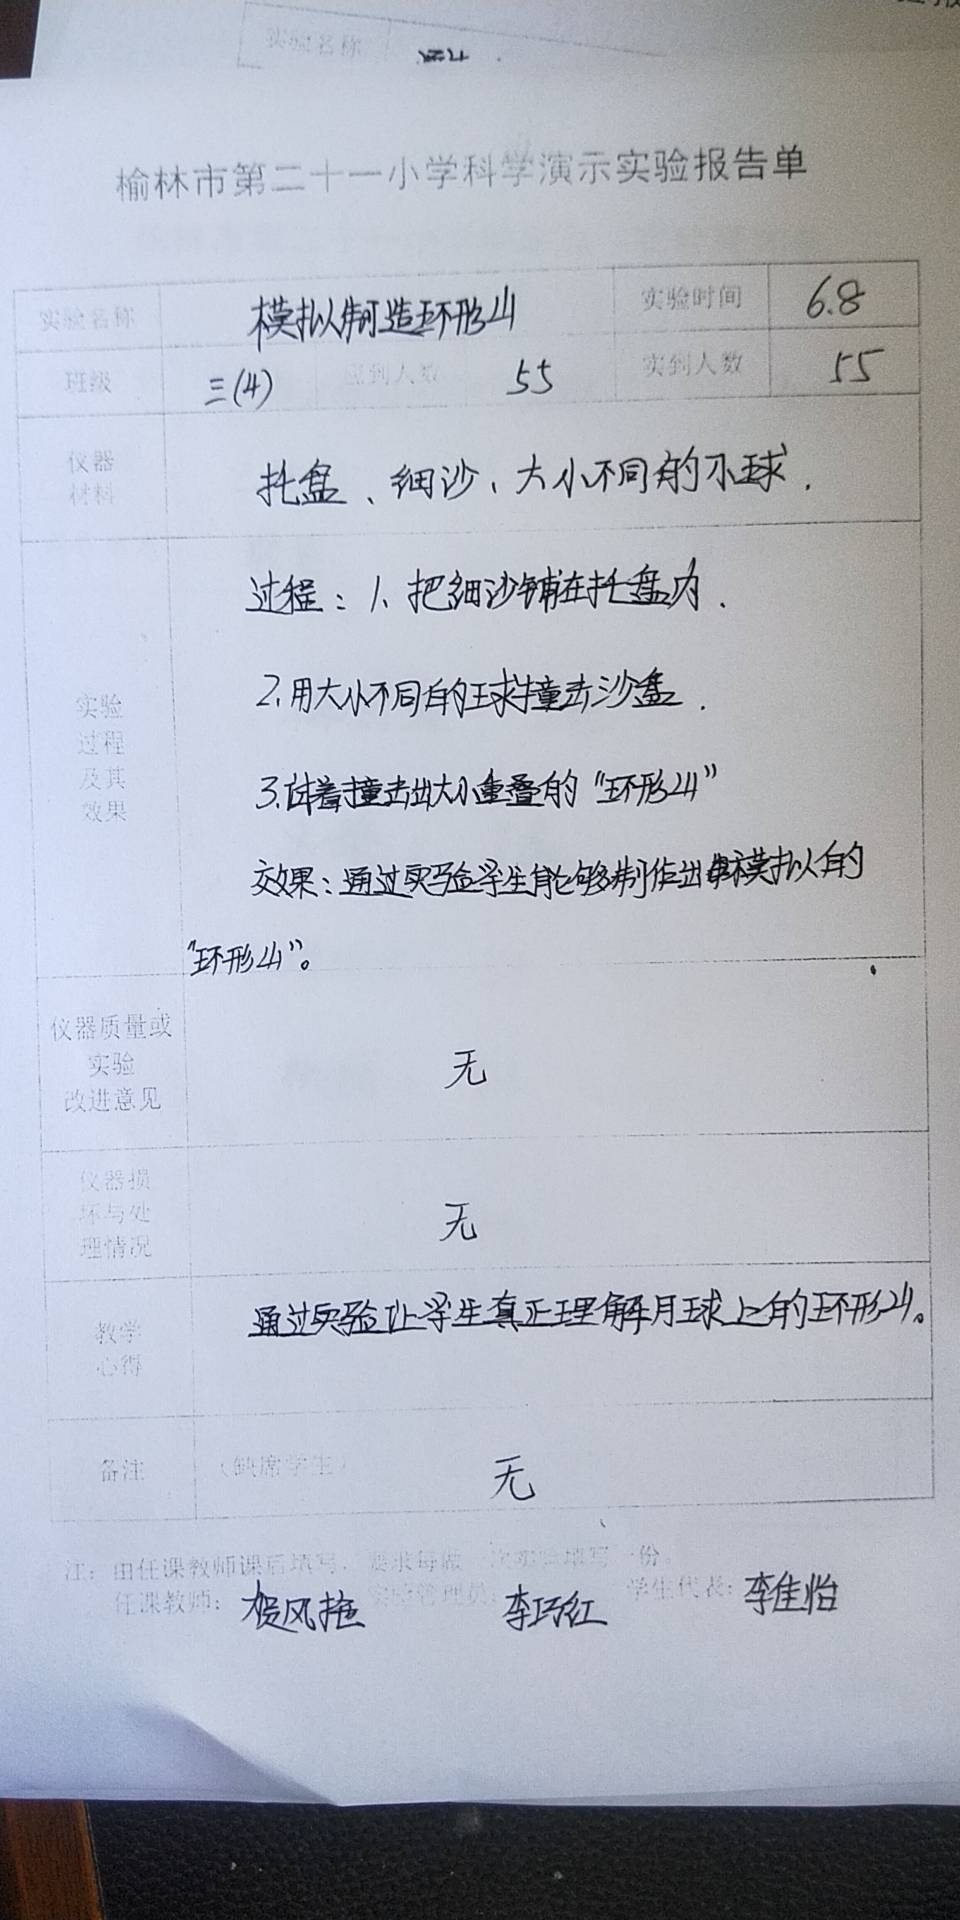 实验名称
榆林市第二十一小学科学演示实验报告单
实验名称 模拟制造环形山 实验时间 6.8
班级 三(4) 应到人数 55 实到人数 55
仪器
材料
托盘、细沙、大小不同的小球.
实验
过程
及其
效果
过程：1、把细沙铺在托盘内.
2.用大小不同的球撞击沙盘.
3.试着撞击出大小重叠的“环形山”
效果：通过实验学生能够制作出模拟的
“环形山”。
仪器质量或
实验
改进意见
无
仪器损
坏与处
理情况
无
教学
心得
通过实验让学生真正理解月球上的环形山。
备注 （缺席学生） 无
注：由任课教师课后填写，要求每做一次实验填写一份。
任课教师： 实验管理员： 李巧红 学生代表：李佳怡